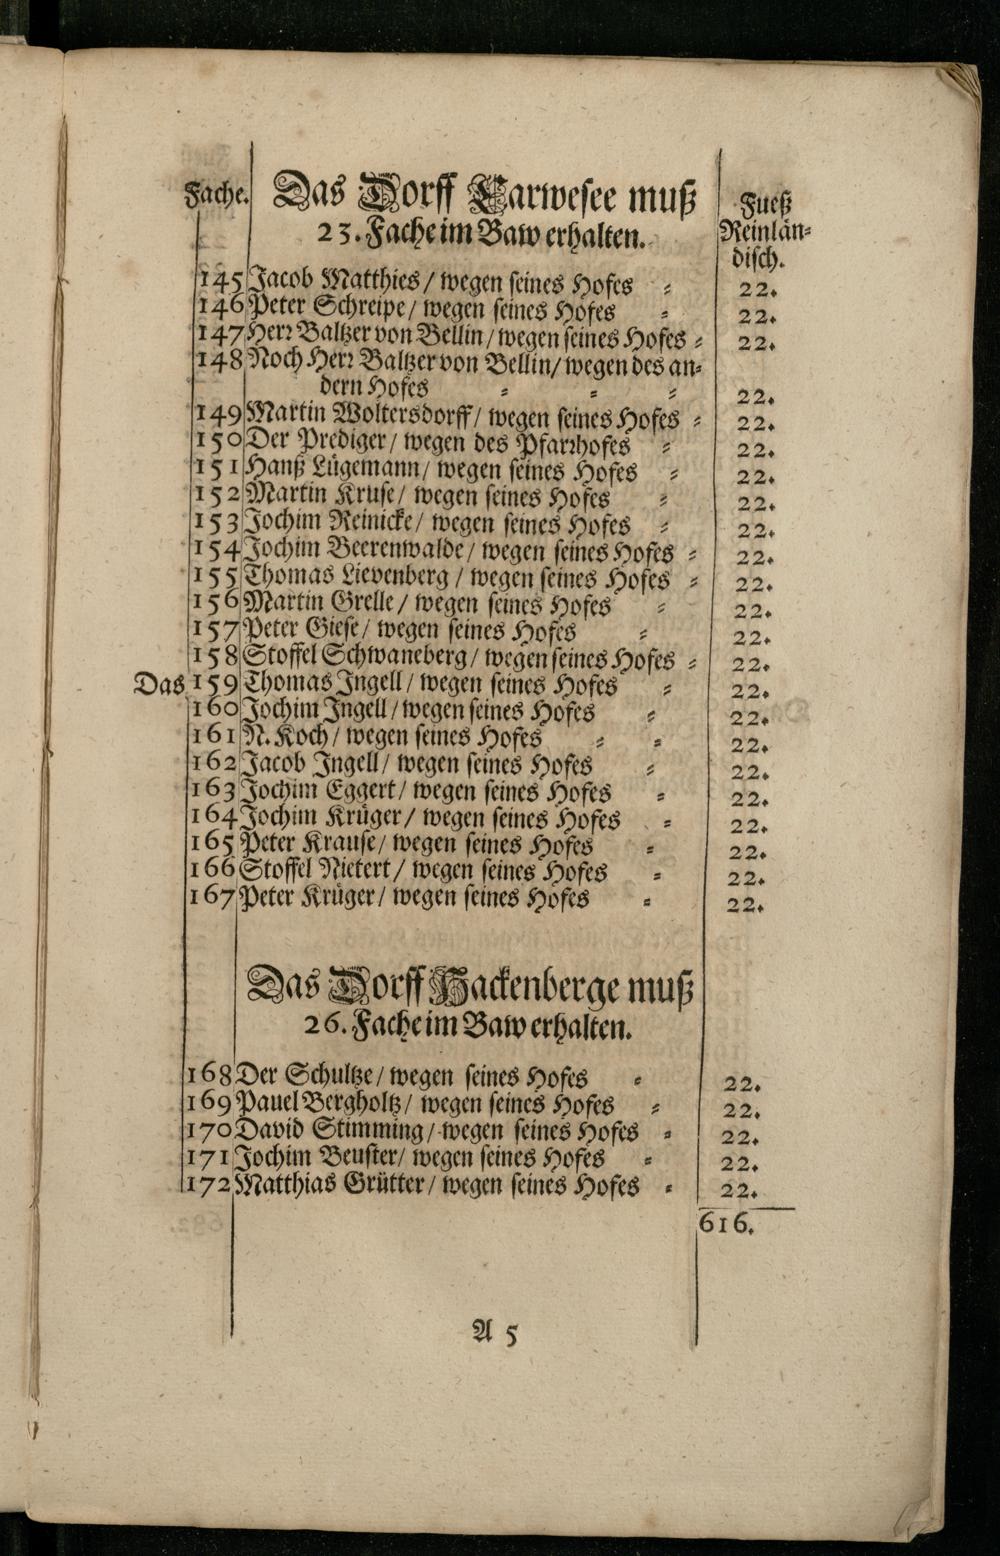 Fache. Das Dorff Carwesee muß Fueß
23. Fache im Baw erhalten. Reinlän⸗
disch.
145 Jacob Matthies / wegen seines Hofes ⸗ 22.
146 Peter Schreipe / wegen seines Hofes ⸗ 22.
147 Herr Baltzer von Bellin / wegen seines Hofes ⸗ 22.
148 Noch Herr Baltzer von Bellin / wegen des an⸗
dern Hofes ⸗ ⸗ ⸗ 22.
149 Martin Woltersdorff / wegen seines Hofes ⸗ 22.
150 Der Prediger / wegen des Pfarrhofes ⸗ 22.
151 Hanß Lügemann / wegen seines Hofes ⸗ 22.
152 Martin Kruse / wegen seines Hofes ⸗ 22.
153 Jochim Reinicke / wegen seines Hofes ⸗ 22.
154 Jochim Beerenwalde / wegen seines Hofes ⸗ 22.
155 Thomas Lievenberg / wegen seines Hofes ⸗ 22.
156 Martin Grelle / wegen seines Hofes ⸗ 22.
157 Peter Giese / wegen seines Hofes ⸗ 22.
158 Stoffel Schwaneberg / wegen seines Hofes ⸗ 22.
Das 159 Thomas Ingell / wegen seines Hofes ⸗ 22.
160 Jochim Ingell / wegen seines Hofes ⸗ 22.
161 N. Koch / wegen seines Hofes ⸗ ⸗ 22.
162 Jacob Ingell / wegen seines Hofes ⸗ 22.
163 Jochim Eggert / wegen seines Hofes ⸗ 22.
164 Jochim Krüger / wegen seines Hofes ⸗ 22.
165 Peter Krause / wegen seines Hofes ⸗ 22.
166 Stoffel Nietert / wegen seines Hofes ⸗ 22.
167 Peter Krüger / wegen seines Hofes ⸗ 22.
Das Dorff Hackenberge muß
26. Fache im Baw erhalten.
168 Der Schultze / wegen seines Hofes ⸗ 22.
169 Pauel Bergholtz / wegen seines Hofes ⸗ 22.
170 David Stimming / wegen seines Hofes ⸗ 22.
171 Jochim Beuster / wegen seines Hofes ⸗ 22.
172 Matthias Grütter / wegen seines Hofes ⸗ 22.
616.
A 5